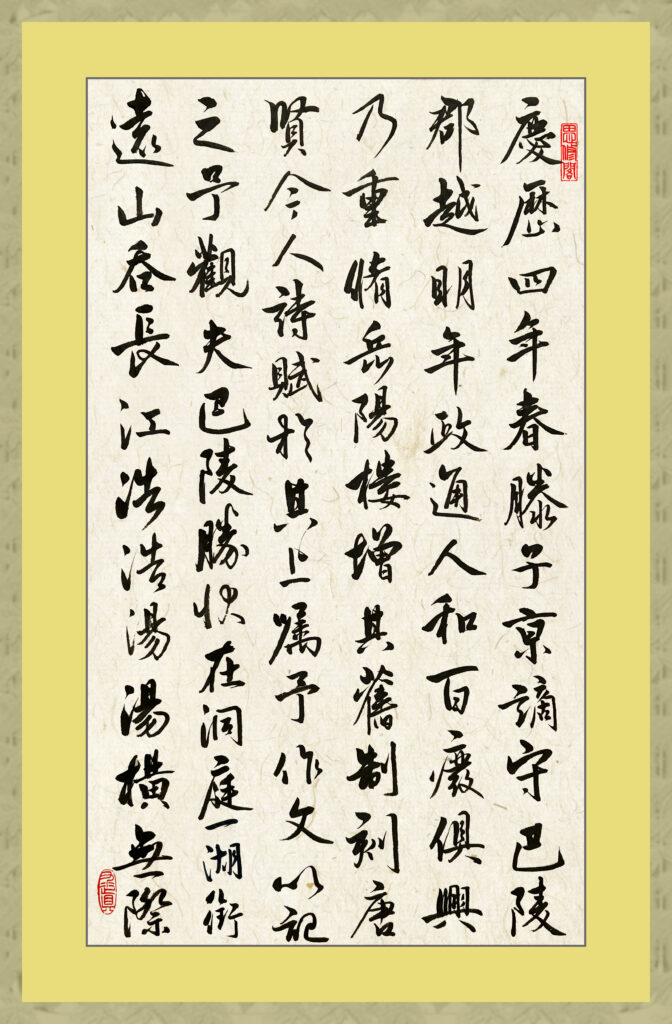 慶歷四年春滕子京謫守巴陵
郡越明年政通人和百廢俱興
乃重脩岳陽樓增其舊制刻唐
賢今人詩賦於其上嘱予作文以記
之予觀夫巴陵勝狀在洞庭一湖銜
遠山吞長江浩浩湯湯橫無際
思修閣